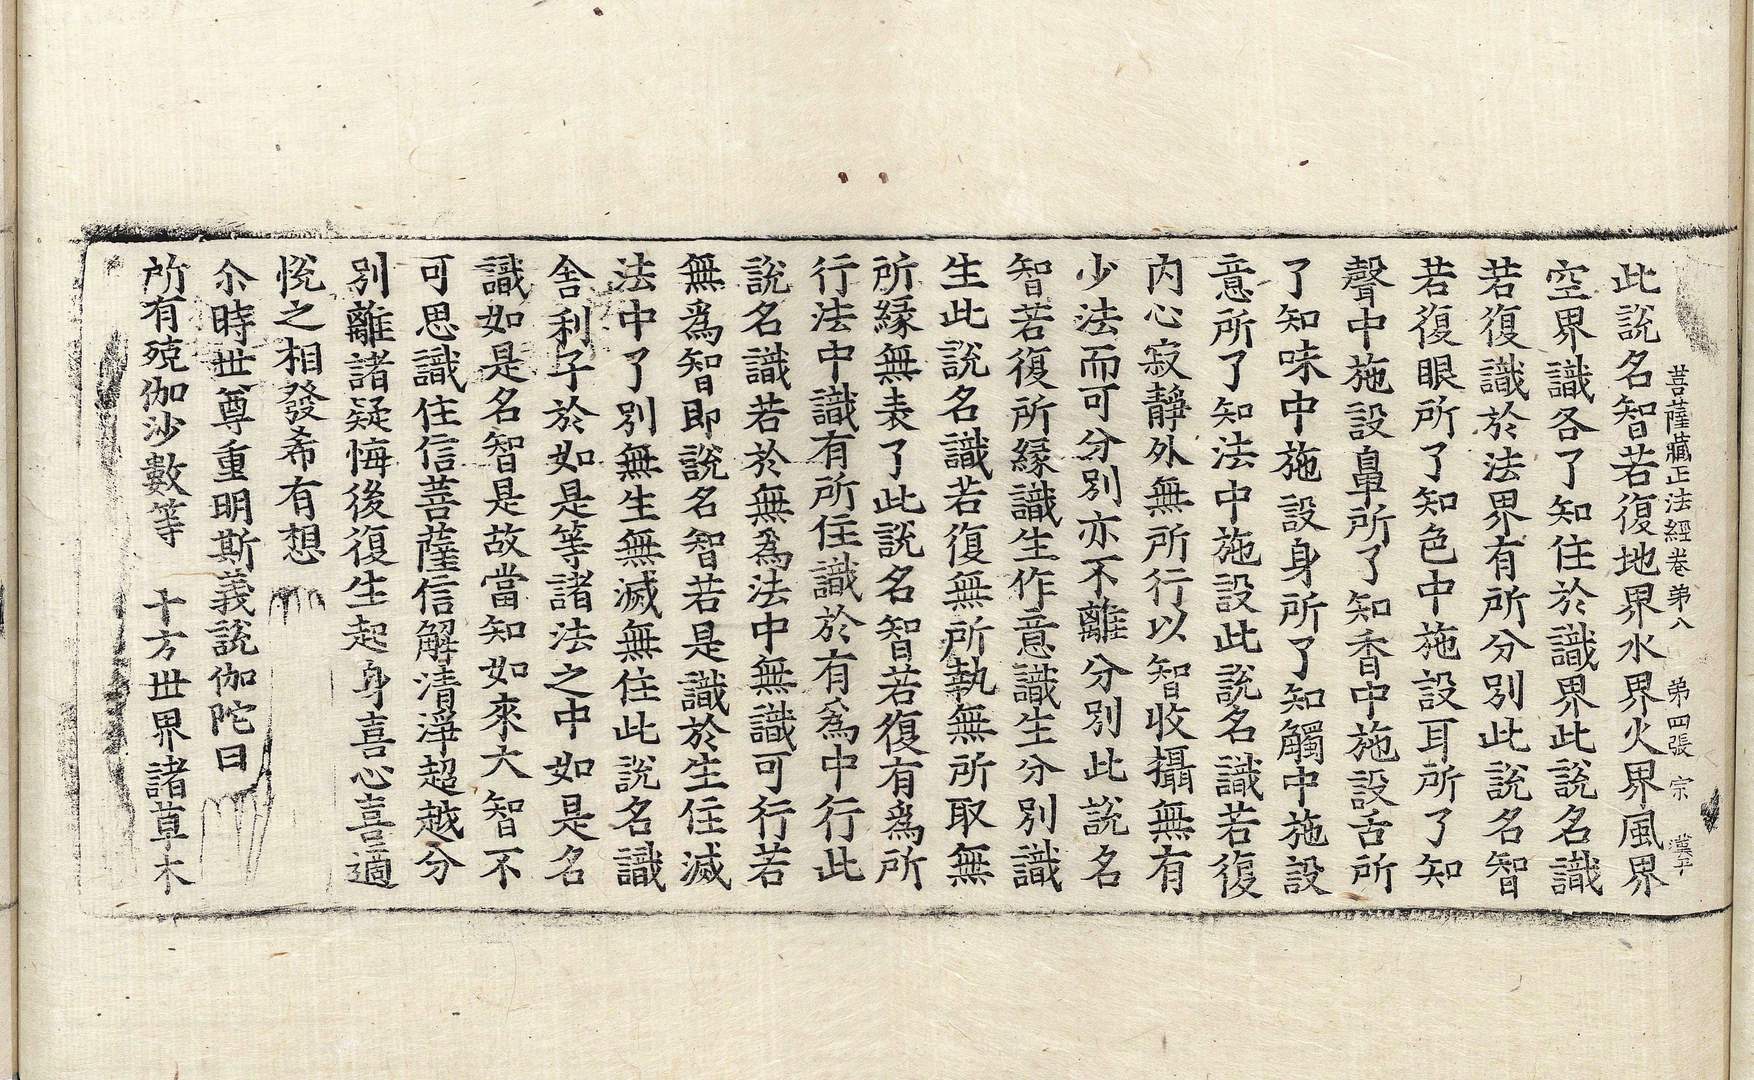 菩薩藏正法經卷第八 第四張 宗 漢平
此說名智若復地界水界火界風界
空界識各了知住於識界此說名識
若復識於法界有所分別此說名智
若復眼所了知色中施設耳所了知
聲中施設鼻所了知香中施設舌所
了知味中施設身所了知觸中施設
意所了知法中施設此說名識若復
內心寂靜外無所行以智收攝無有
少法而可分別亦不離分別此說名
智若復所緣識生作意識生分別識
生此說名識若復無所執無所取無
所緣無表了此說名智若復有為所
行法中識有所住識於有為中行此
說名識若於無為法中無識可行若
無為智即說名智若是識於生住滅
法中了別無生無滅無住此說名識
舍利子於如是等諸法之中如是名
識如是名智是故當知如來大智不
可思識住信菩薩信解清淨超越分
別離諸疑悔後復生起身喜心喜適
悅之相發希有想
尒時世尊重明斯義說伽陀曰
所有殑伽沙數等 十方世界諸草木